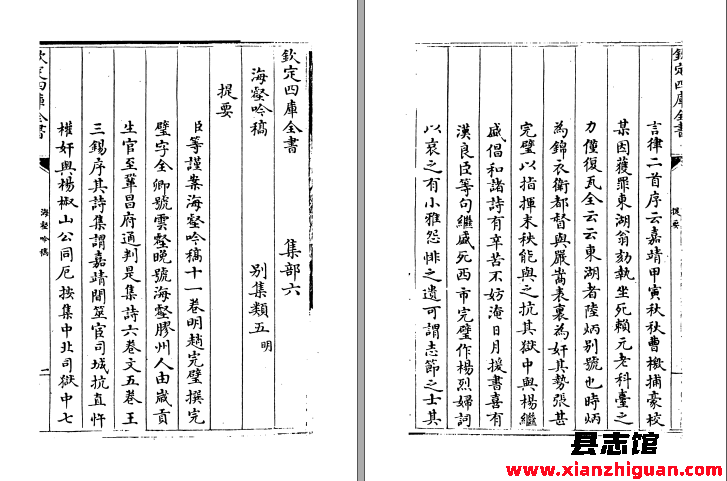 欽定四庫全書 集部六
海壑吟稿 別集類五 明
提要
臣等謹案海壑吟稿十一卷明趙完璧撰完
璧字全卿號雲壑晚號海壑膠州人由歲貢
生官至鞏昌府通判是集詩六卷文五卷王
三錫序其詩集謂嘉靖間筮官司城抗直忤
權奸與楊椒山公同厄按集中北司獄中七
欽定四庫全書 海壑吟稿
欽定四庫全書 提要
言律二首序云嘉靖甲寅秋秋曹檄捕豪校
某因獲罪東湖翁劾執坐死賴元老科臺之
力僅復瓦全云云東湖者陸炳別號也時炳
為錦衣衛都督與嚴嵩表裏為奸其勢張甚
完璧以指揮末秩能與之抗其獄中與楊繼
盛倡和諸詩有辛苦不妨淹日月援書喜有
漢良臣等句繼盛死西市完璧作楊烈婦詞
以哀之有小雅怨悱之遺可謂志節之士其
县志馆
www.xianzhiguan.com